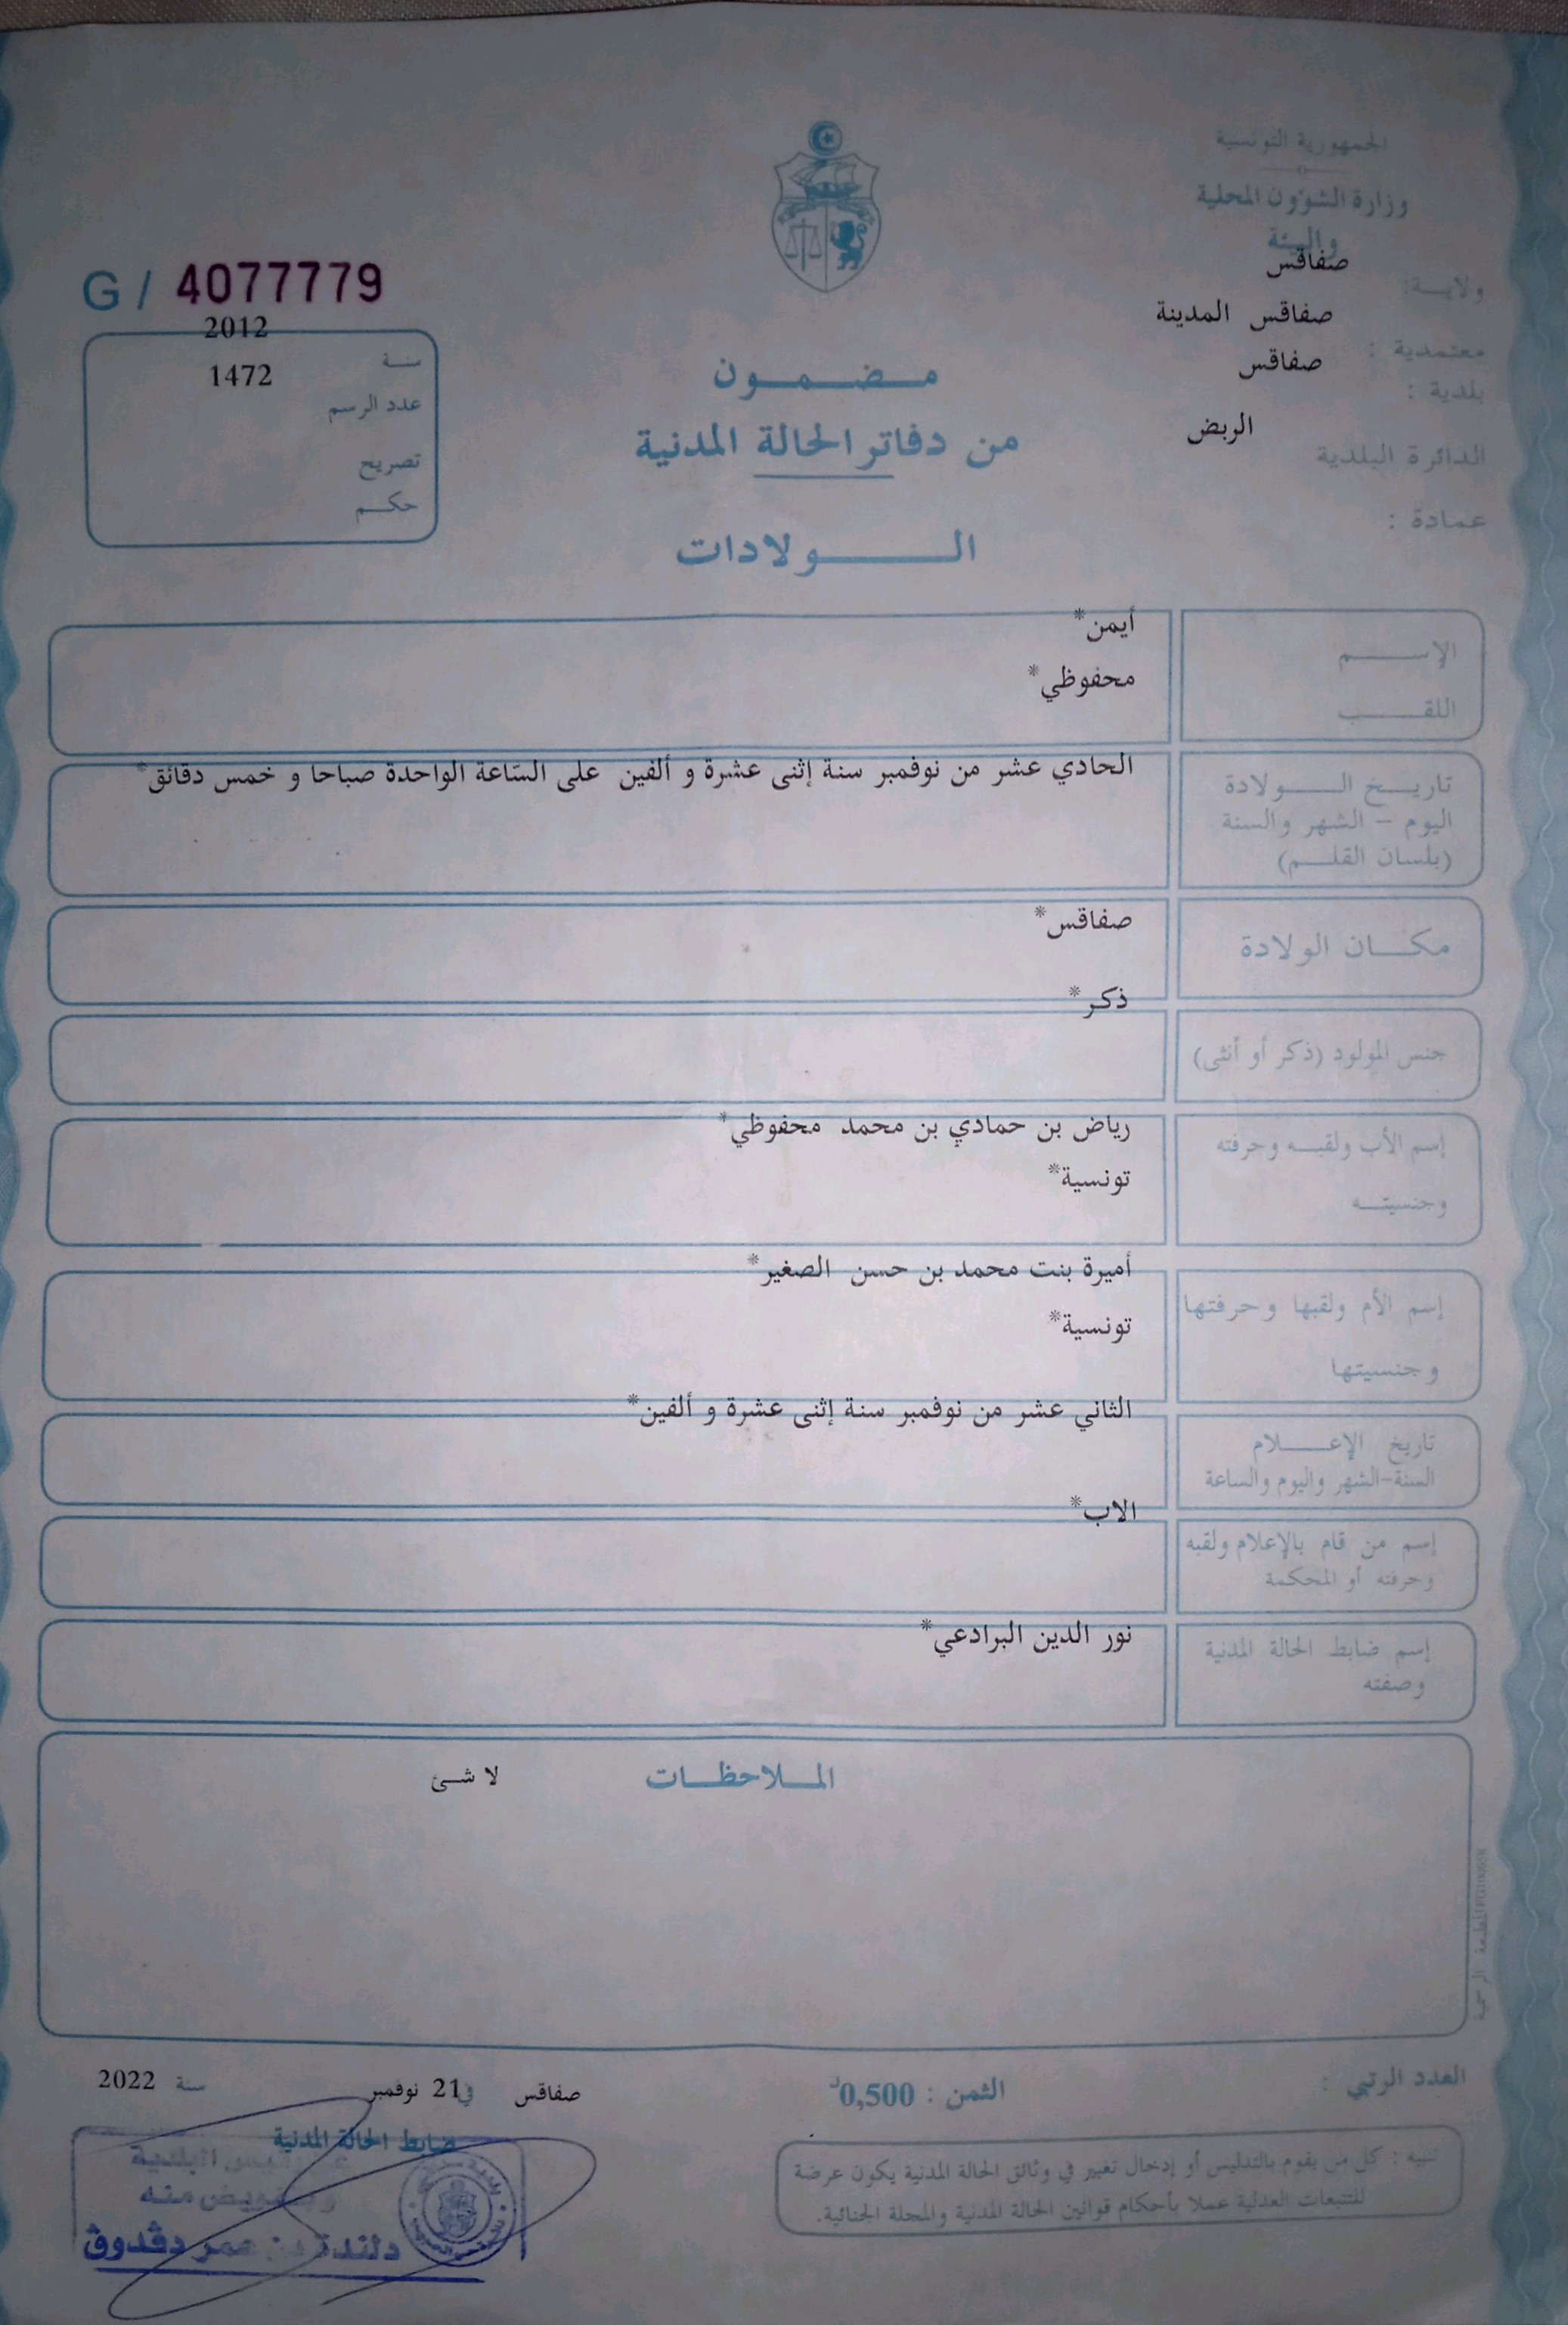 الجمهورية التونسية
وزارة الشؤون المحلية
والبيئة
ولايــة: صفاقس
معتمدية : صفاقس المدينة
بلدية : صفاقس
الدائرة البلدية الربض
عمادة :
G / 4077779
سنة 2012
عدد الرسم 1472
تصريح
حكم
مضمون
من دفاتر الحالة المدنية
الولادات
الإسم أيمن*
اللقب محفوظي*
تاريخ الولادة الحادي عشر من نوفمبر سنة إثنى عشرة و ألفين على السّاعة الواحدة صباحا و خمس دقائق*
اليوم - الشهر والسنة
(بلسان القلم)
مكان الولادة صفاقس*
جنس المولود (ذكر أو أنثى) ذكر*
إسم الأب ولقبه وحرفته رياض بن حمادي بن محمد محفوظي*
وجنسيته تونسية*
إسم الأم ولقبها وحرفتها أميرة بنت محمد بن حسن الصغير*
وجنسيتها تونسية*
تاريخ الإعلام الثاني عشر من نوفمبر سنة إثنى عشرة و ألفين*
السنة-الشهر واليوم والساعة
إسم من قام بالإعلام ولقبه الاب*
وحرفته أو المحكمة
إسم ضابط الحالة المدنية نور الدين البرادعي*
وصفته
الملاحظات لا شئ
المطبعة الرسمية
العدد الرتبي :
الثمن : 0,500د
صفاقس في 21 نوفمبر سنة 2022
ضابط الحالة المدنية
تنبيه : كل من يقوم بالتدليس أو إدخال تغيير في وثائق الحالة المدنية يكون عرضة
للتتبعات العدلية عملا بأحكام قوانين الحالة المدنية والمجلة الجنائية.
البلدية
وبتفويض منه
عمر دڤدوڤ